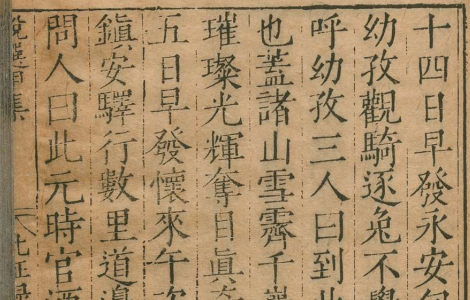 十四日早發永安
幼孜觀騎逐兔不
呼幼孜三人曰到
也蓋諸山雪霽千
璀璨光輝奪目眞
五日早發懷來午次
鎮安驛行數里道
問人曰此元時官酒